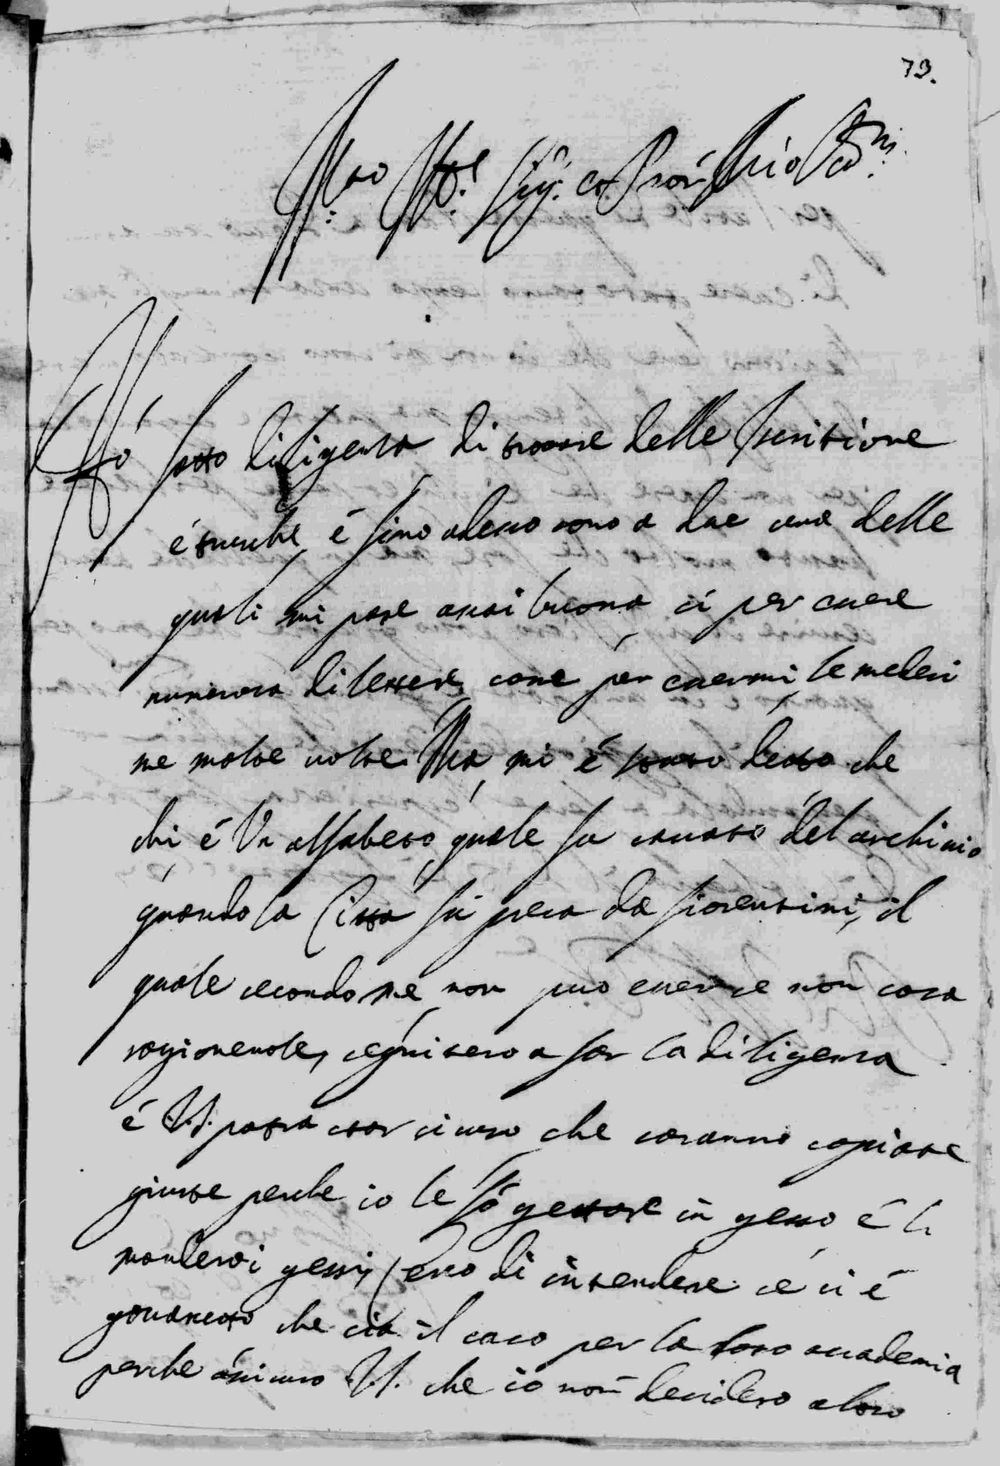 73.
Ill.mo Sig. e Pron mio Col.mo
Hó fatto diligenza di trovare delle Iscritione
é trusche, é sino adesso sono a due una delle
quali mi pare assai buona si per avere
numerosa di lettere, come per esservi le medesi
me molte volte. Ma, mi é stato detto che
chi é Un alfabeto, quale fu cavato del archivio
quando la Citta fú presa da fiorentini, il
quale secondo me non puo essere se non cosa
ragionevole, seguitero a far la diligenza
é V.S. potra star sicuro che saranno copiate
giuste perche io le fó gettare in gesso é li
manderó i gessi, spero di intendere se ci é
govanetto che sia il caso per la loro accademia
perche assicuro V.S. che io non desidero a loro